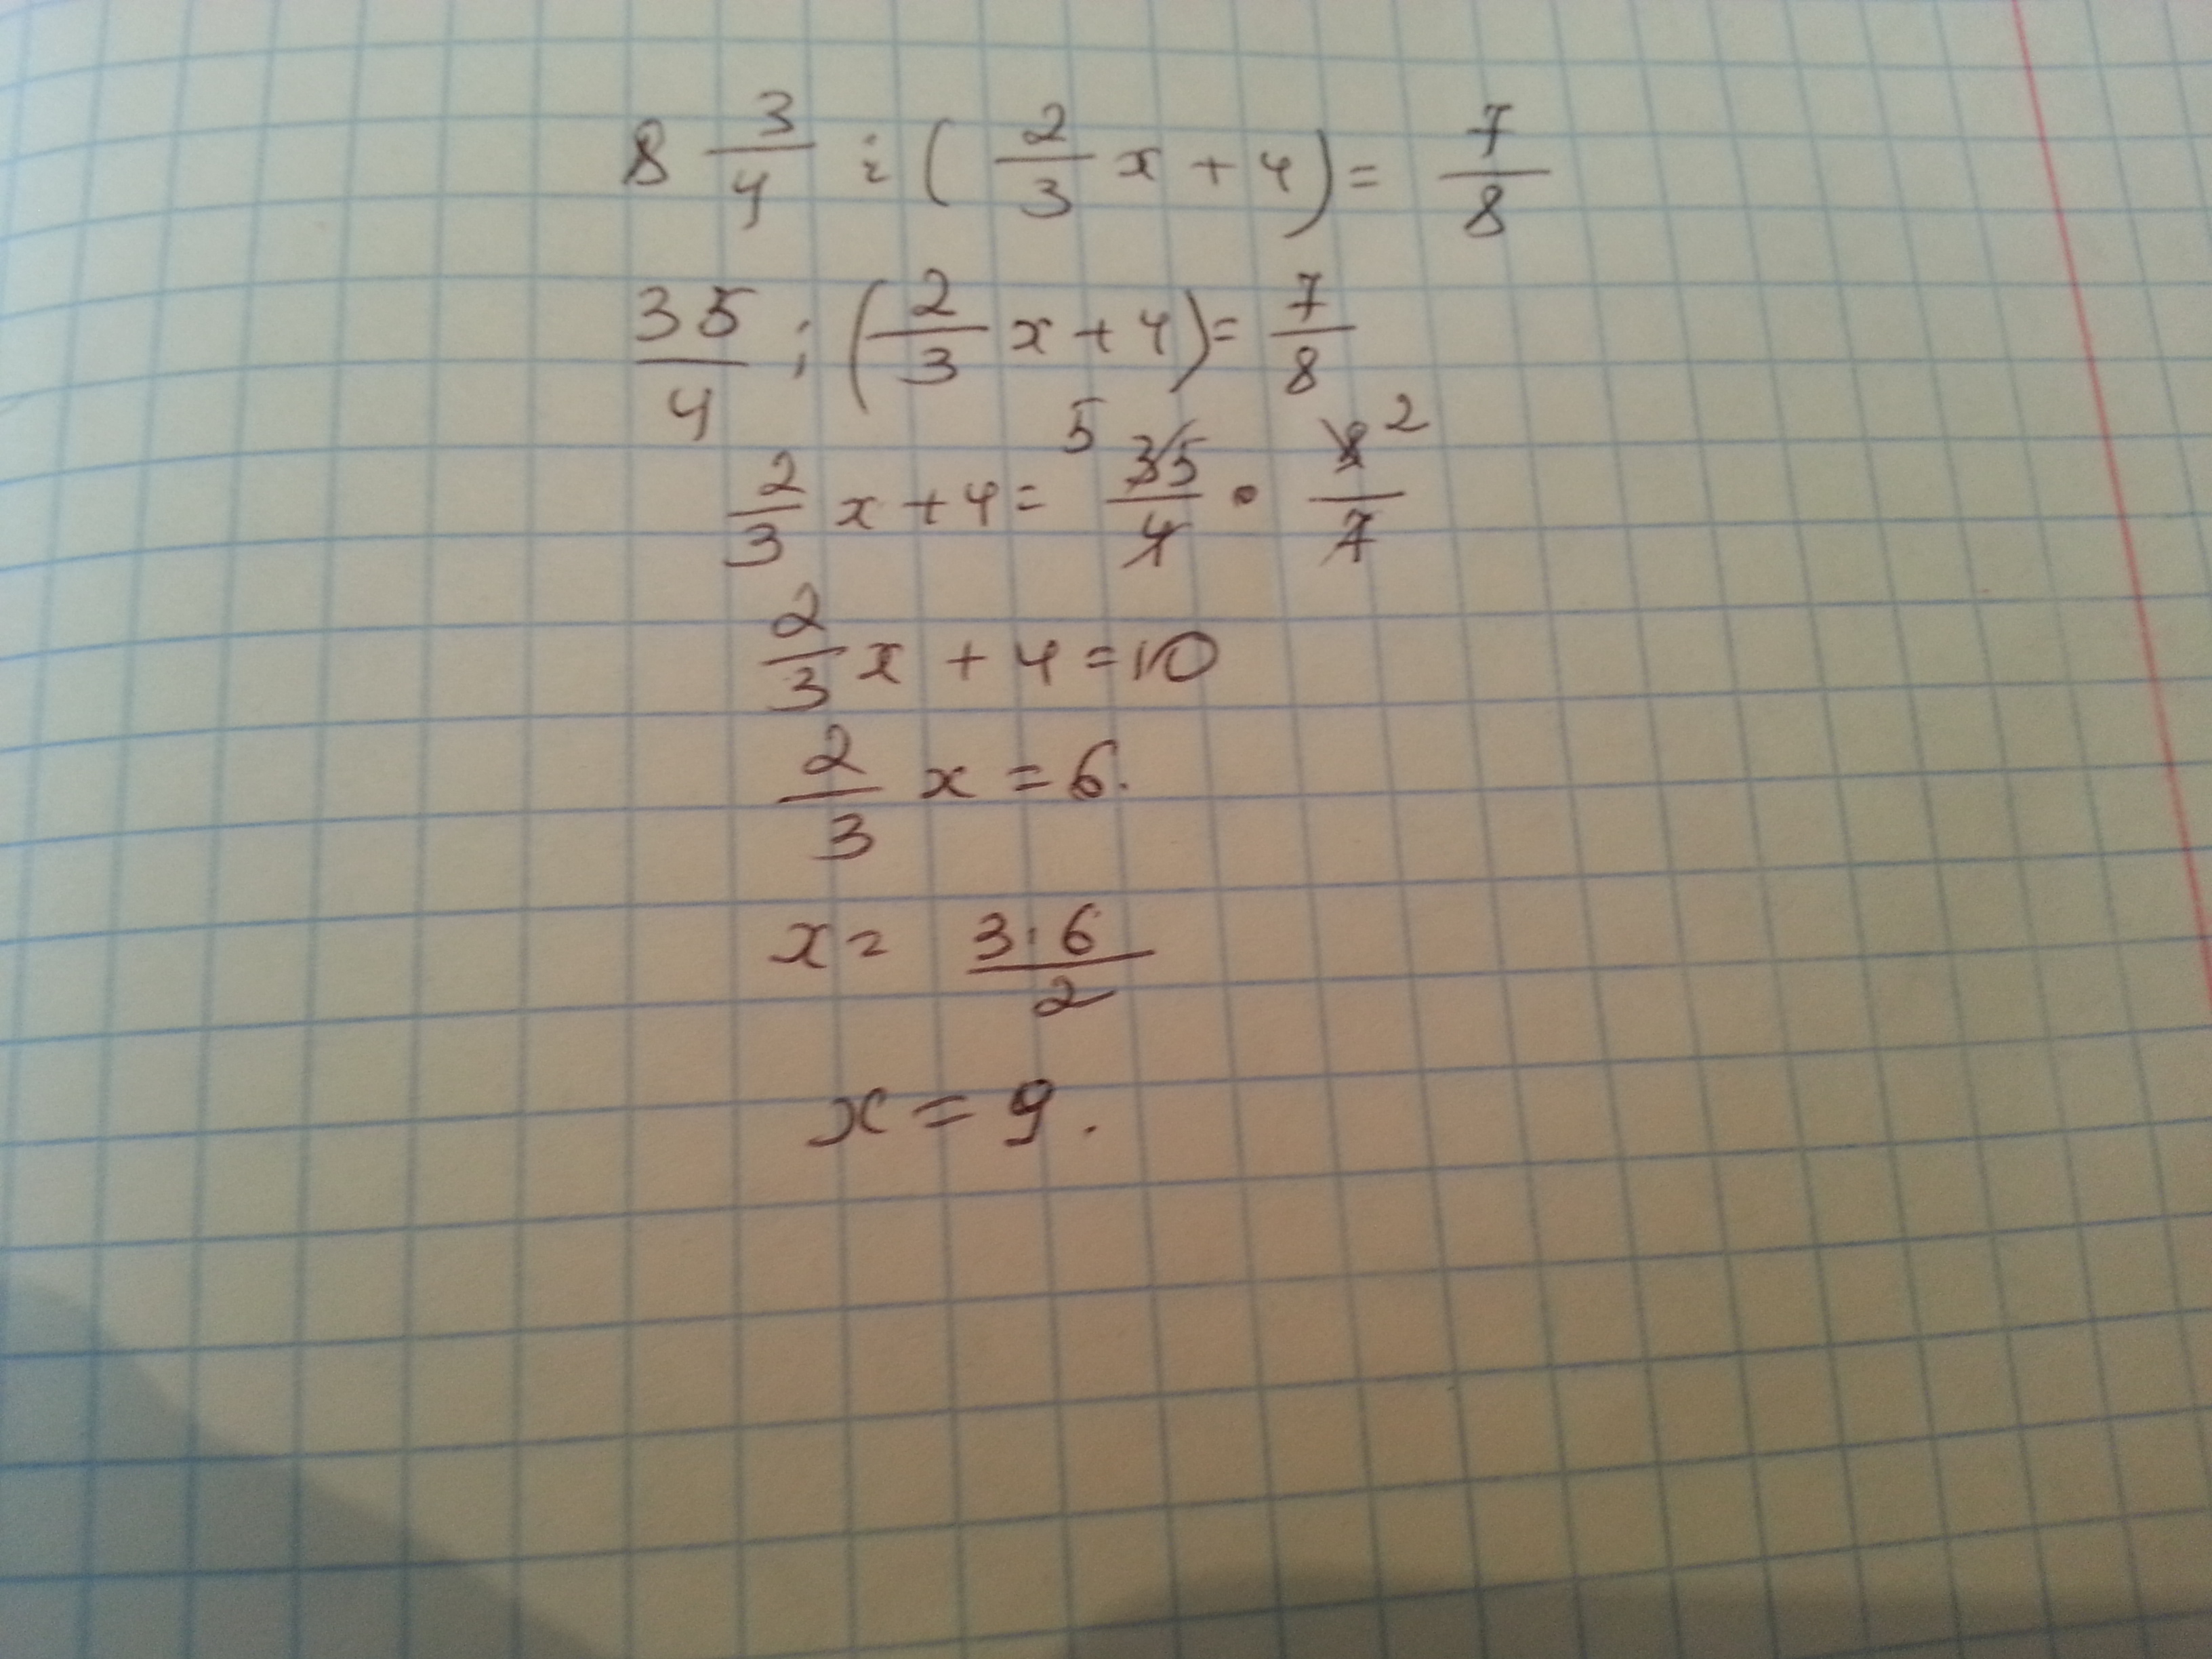 8 3/4 : (2/3 x + 4) = 7/8
35/4 : (2/3 x + 4) = 7/8
2/3 x + 4 = 5 35/4 • 8/7 2
2/3 x + 4 = 10
2/3 x = 6.
x = 3·6/2
x = 9.